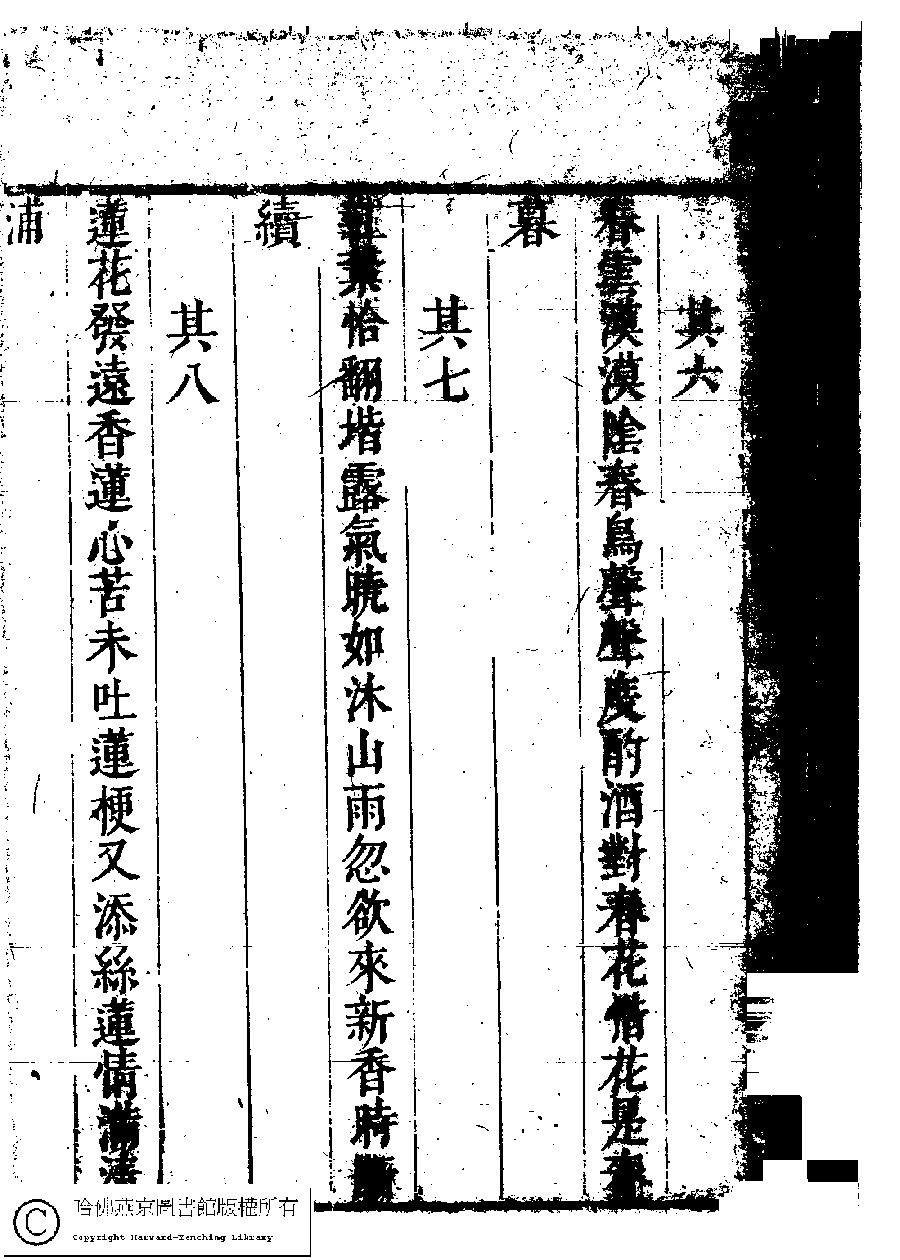 其六
春雲漠漠陰春鳥聲聲度酌酒對春花惜花是春
暮
其七
葉恰翻堦露氣曉如沐山雨忽欲來新香時
續
其八
蓮花發遠香蓮心苦未吐蓮梗又添絲蓮情滿
浦
哈佛燕京圖書館版權所有
Copyright Harvard-Yenching Library